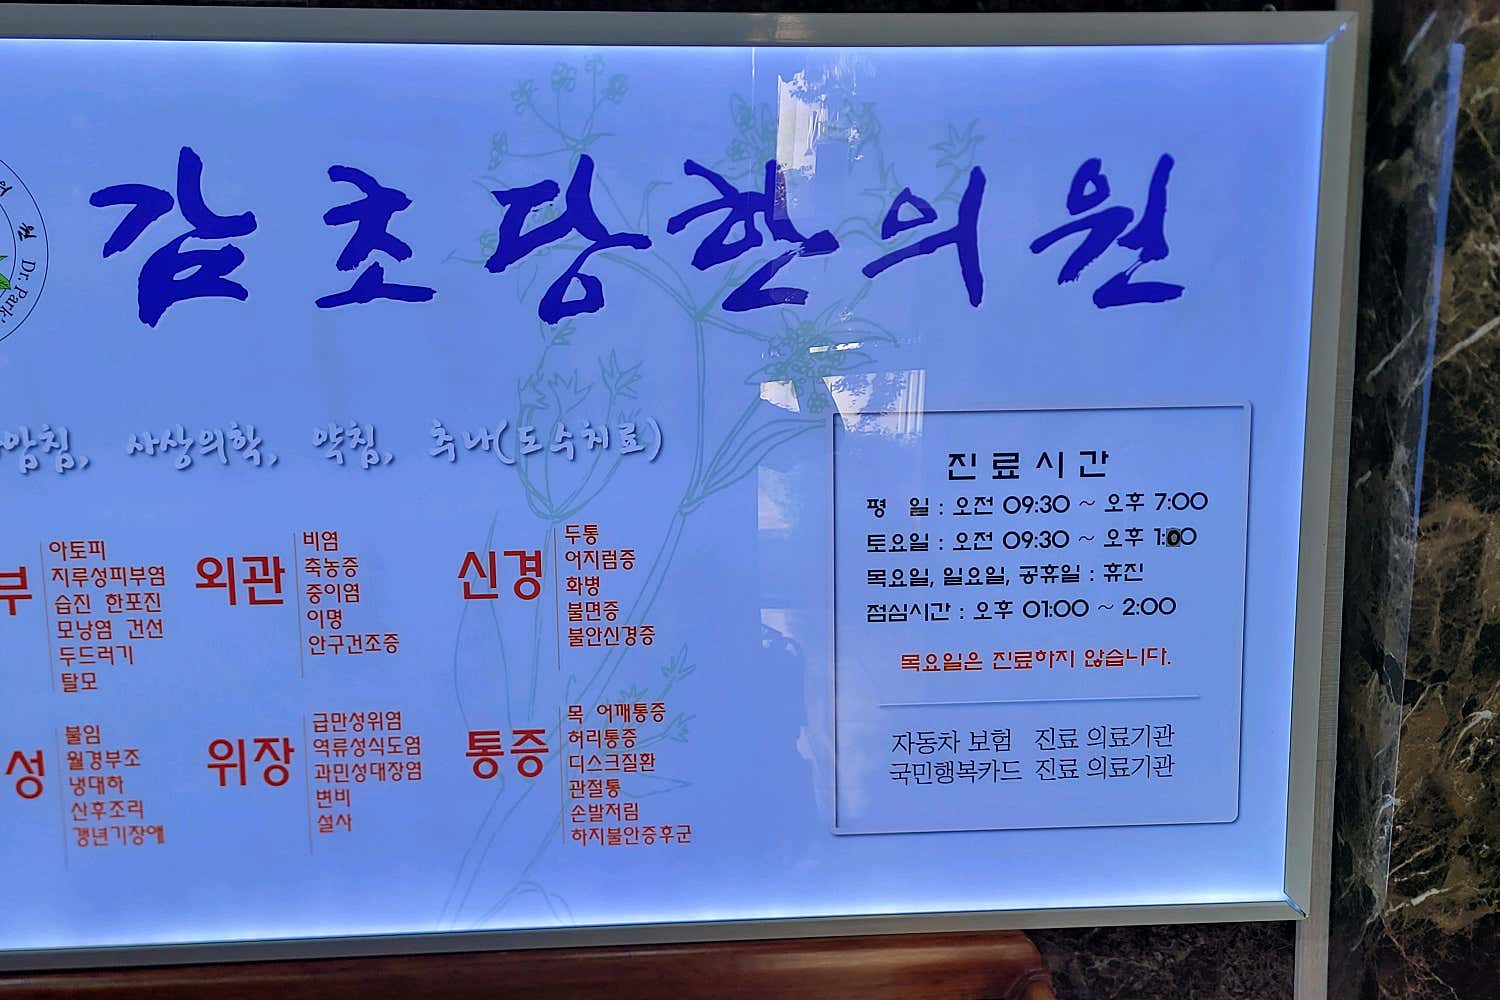 Dr. Park'
감초당한의원
사상의학, 약침, 추나(도수치료)
아토피
지루성피부염
습진 한포진
모낭염 건선
두드러기
탈모
외관
비염
축농증
중이염
이명
안구건조증
신경
두통
어지럼증
화병
불면증
불안신경증
성
불임
월경부조
냉대하
산후조리
갱년기장애
위장
급만성위염
역류성식도염
과민성대장염
변비
설사
통증
목 어깨통증
허리통증
디스크질환
관절통
손발저림
하지불안증후군
진료시간
평 일 : 오전 09:30 ~ 오후 7:00
토요일 : 오전 09:30 ~ 오후 1:00
목요일, 일요일, 공휴일 : 휴진
점심시간 : 오후 01:00 ~ 2:00
목요일은 진료하지 않습니다.
자동차 보험 진료 의료기관
국민행복카드 진료 의료기관